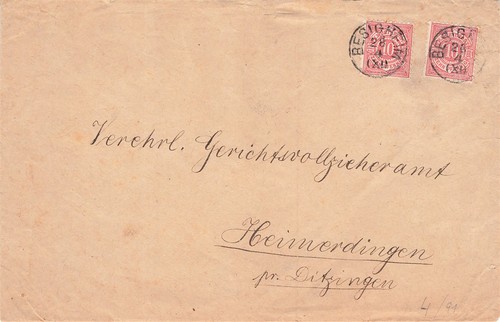 BESIGHEIM
28
4
(XI)
10
BESIGH
28
4
(XI)
Verehrl. Gerichtsvollzieheramt
Heimerdingen
pr. Ditzingen
4/91